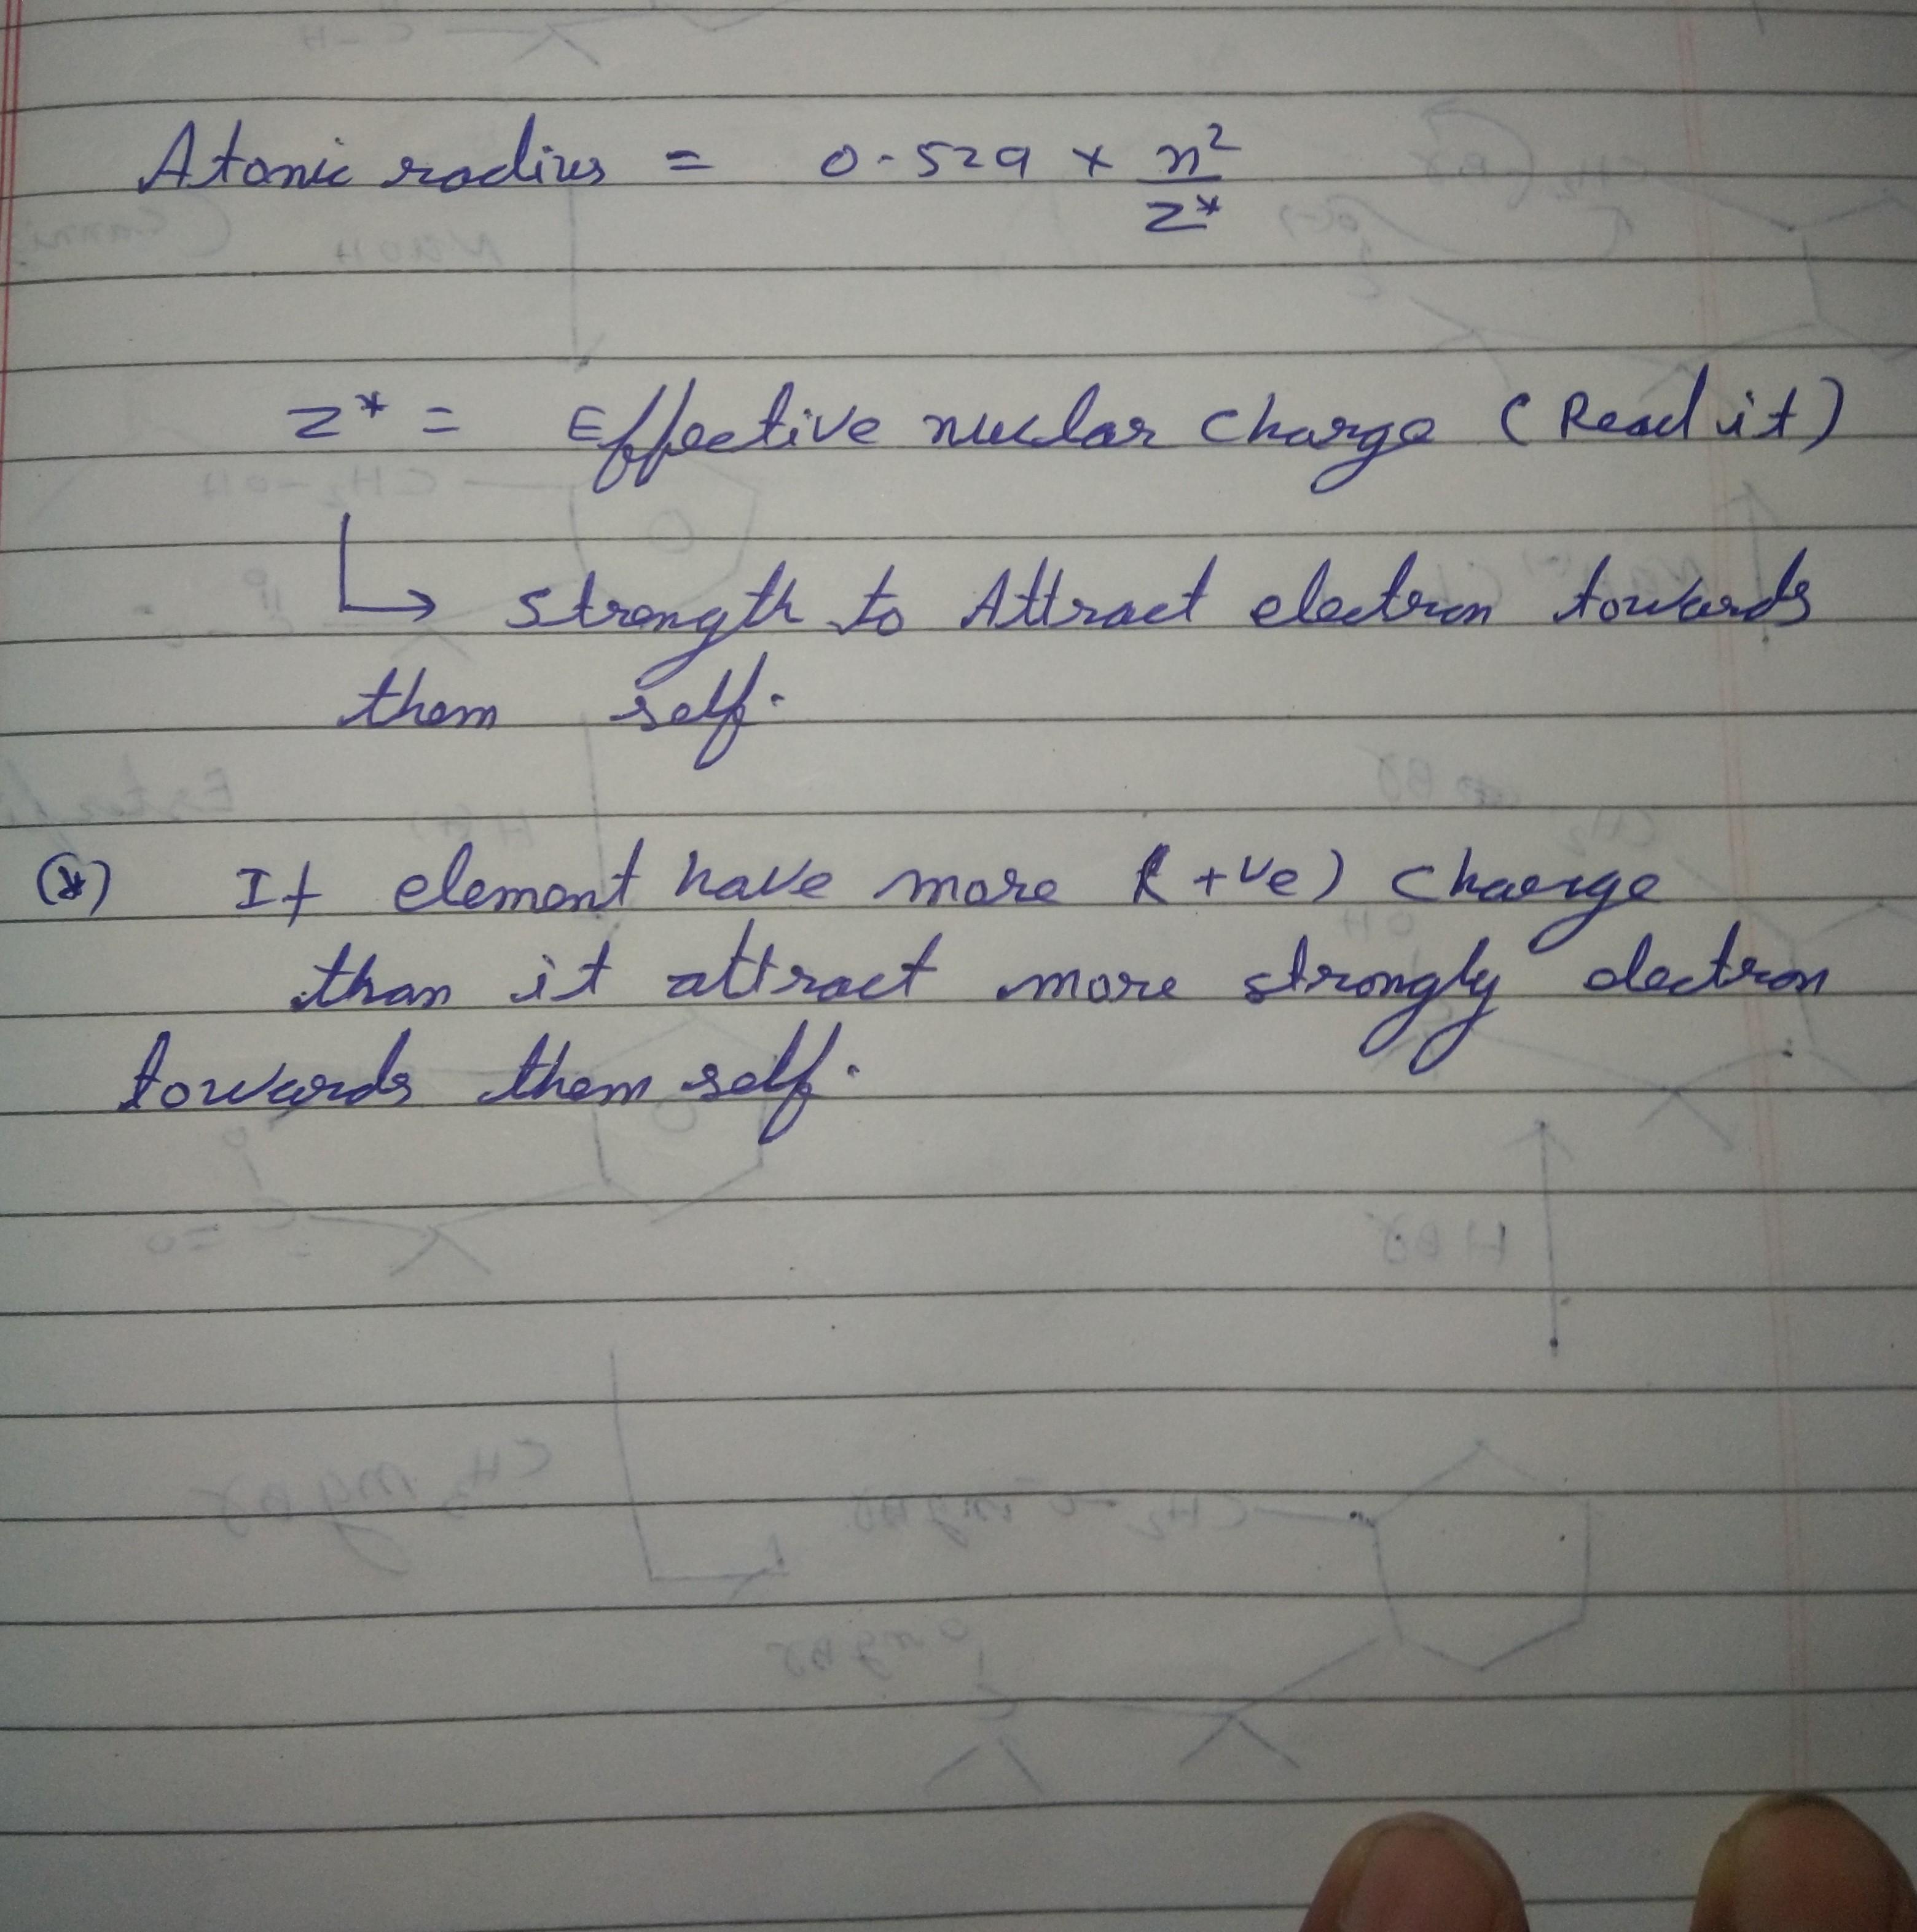 Atomic radius = 0.529 × n²/Z*
Z* = Effective nuclar charge (Read it)
↳ strength to Attract electron towards
them self.
(*) If element have more (+ve) charge
than it attract more strongly electron
towards them self.